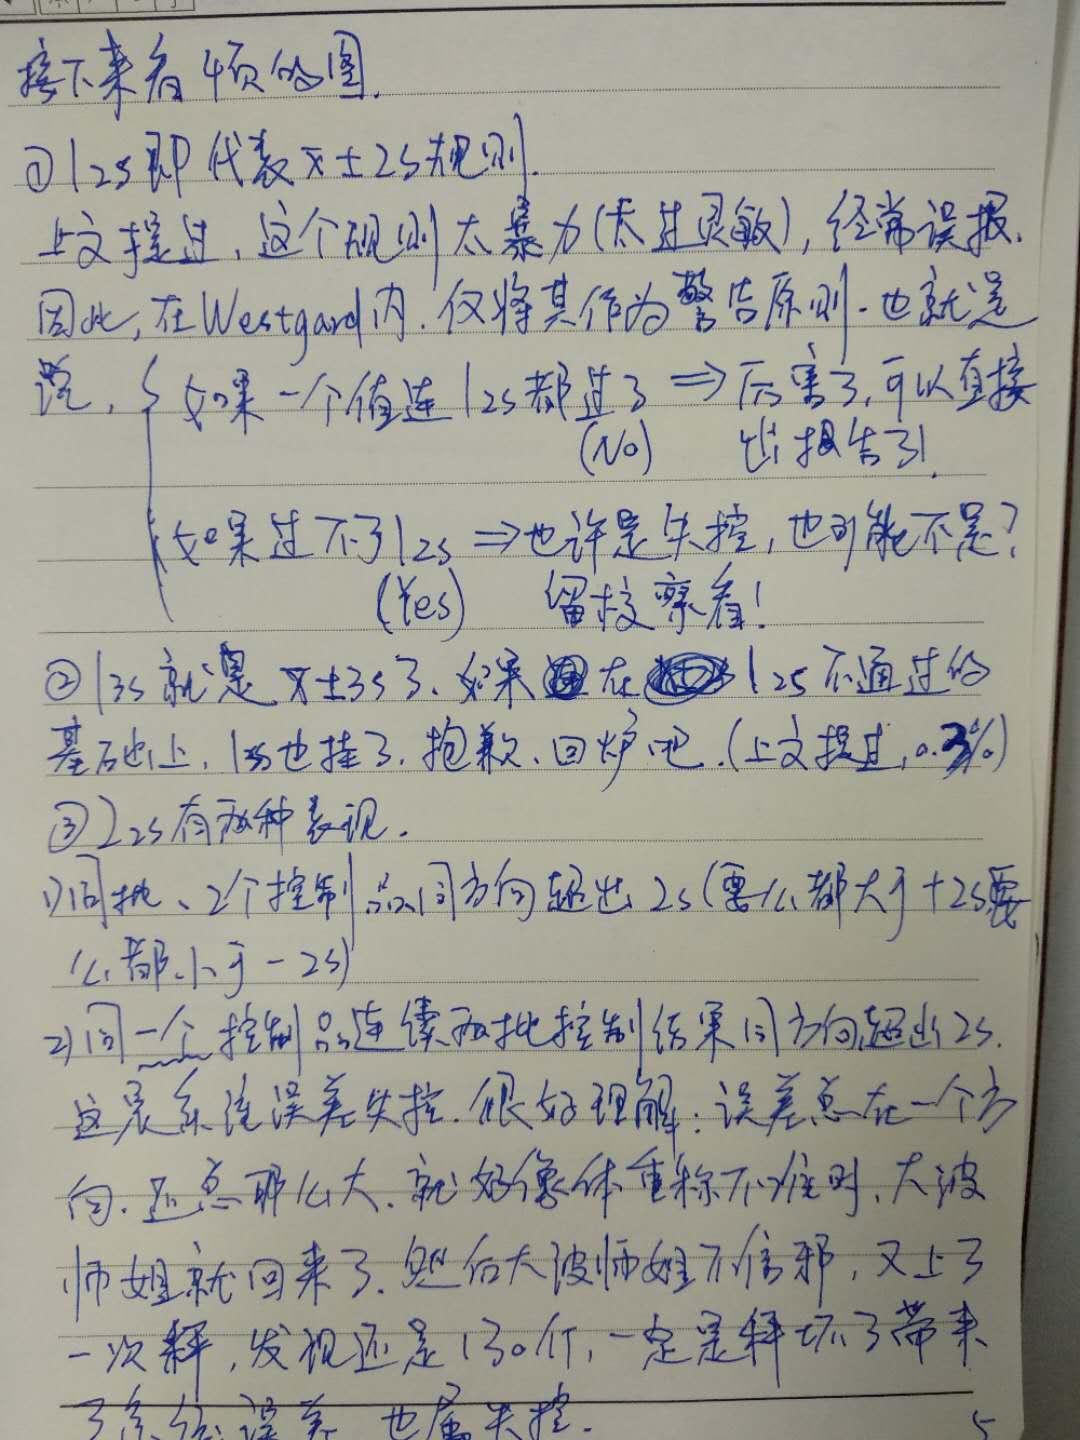 接下来看4页的图.
①1₂s即代表x̄±2s规则.
上文提过,这个规则太暴力(太过灵敏),经常误报.
因此,在Westgard内.仅将其作为警告原则.也就是
说,{如果一个值连1₂s都过了⇒厉害了,可以直接
(No) 出报告了!
如果过不了1₂s⇒也许是失控,也可能不是?
(Yes) 留校察看!
②1₃s就是x̄±3s了.如果在1₂s不通过的
基础上,1₃s也挂了.抱歉、回炉吧.(上文提过,0.3%)
③2₂s有两种表现.
1)同批、2个控制品同方向超出2s(要么都大于+2s要
么都小于-2s)
2)同一个控制品连续两批控制结果同方向超出2s.
这是系统误差失控.很好理解:误差总在一个方
向.还总那么大.就好像体重称不准时、大波
师姐就回来了.然后大波师姐不信邪,又上了
一次秤,发现还是130斤,一定是秤坏了带来
了系统误差 也属失控.
5